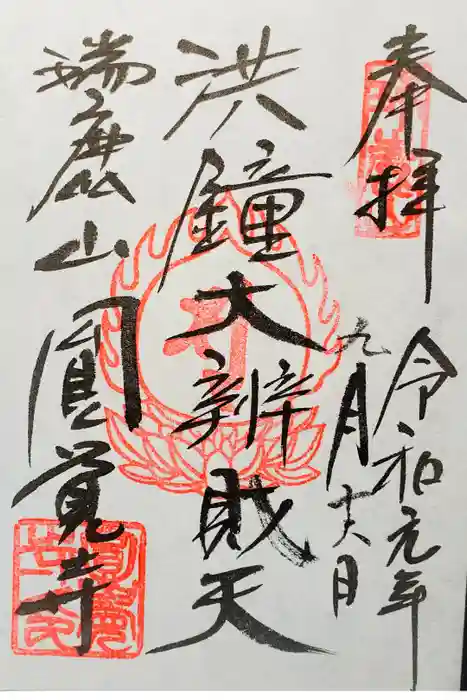 奉拝
令和元年
九月十六日
洪鐘大辨財天
瑞鹿山
圓覚寺